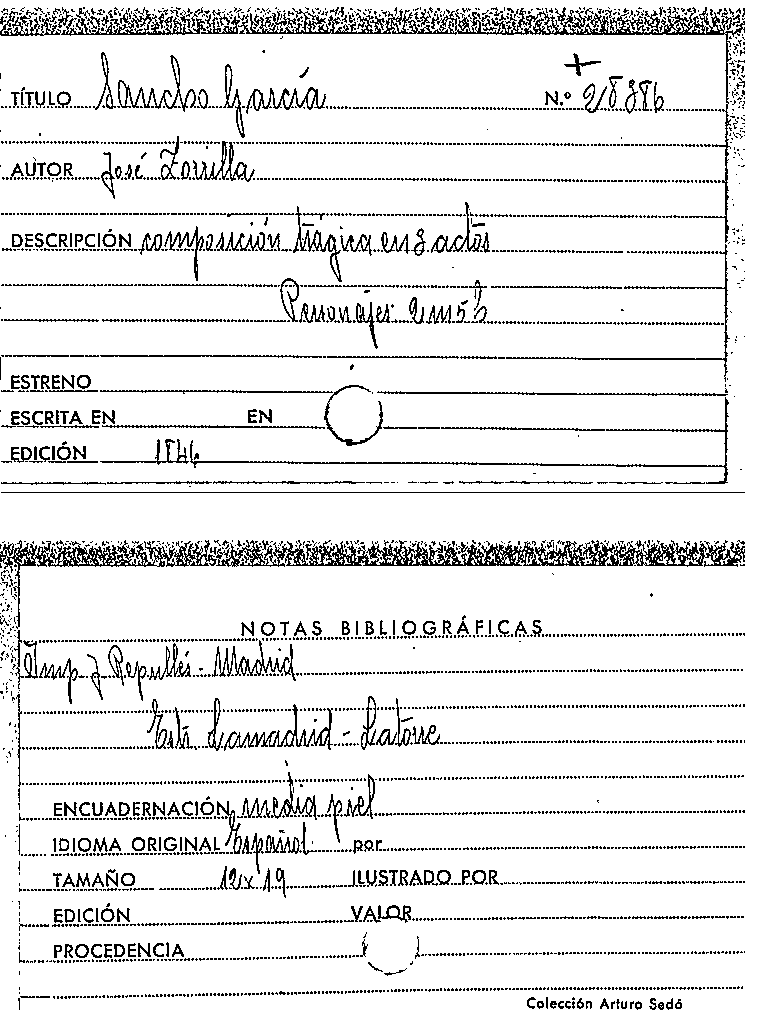 +
TÍTULO Sancho García N.º 28386
AUTOR José Zorrilla
DESCRIPCIÓN composición trágica en 3 actos
Personajes 2 m 5 h
ESTRENO
ESCRITA EN EN
EDICIÓN 1846
NOTAS BIBLIOGRÁFICAS
Imp J Repullés - Madrid
Lamadrid - Latorre
ENCUADERNACIÓN media piel
IDIOMA ORIGINAL Español por
TAMAÑO 12x19 ILUSTRADO POR
EDICIÓN VALOR
PROCEDENCIA
Colección Arturo Sedó